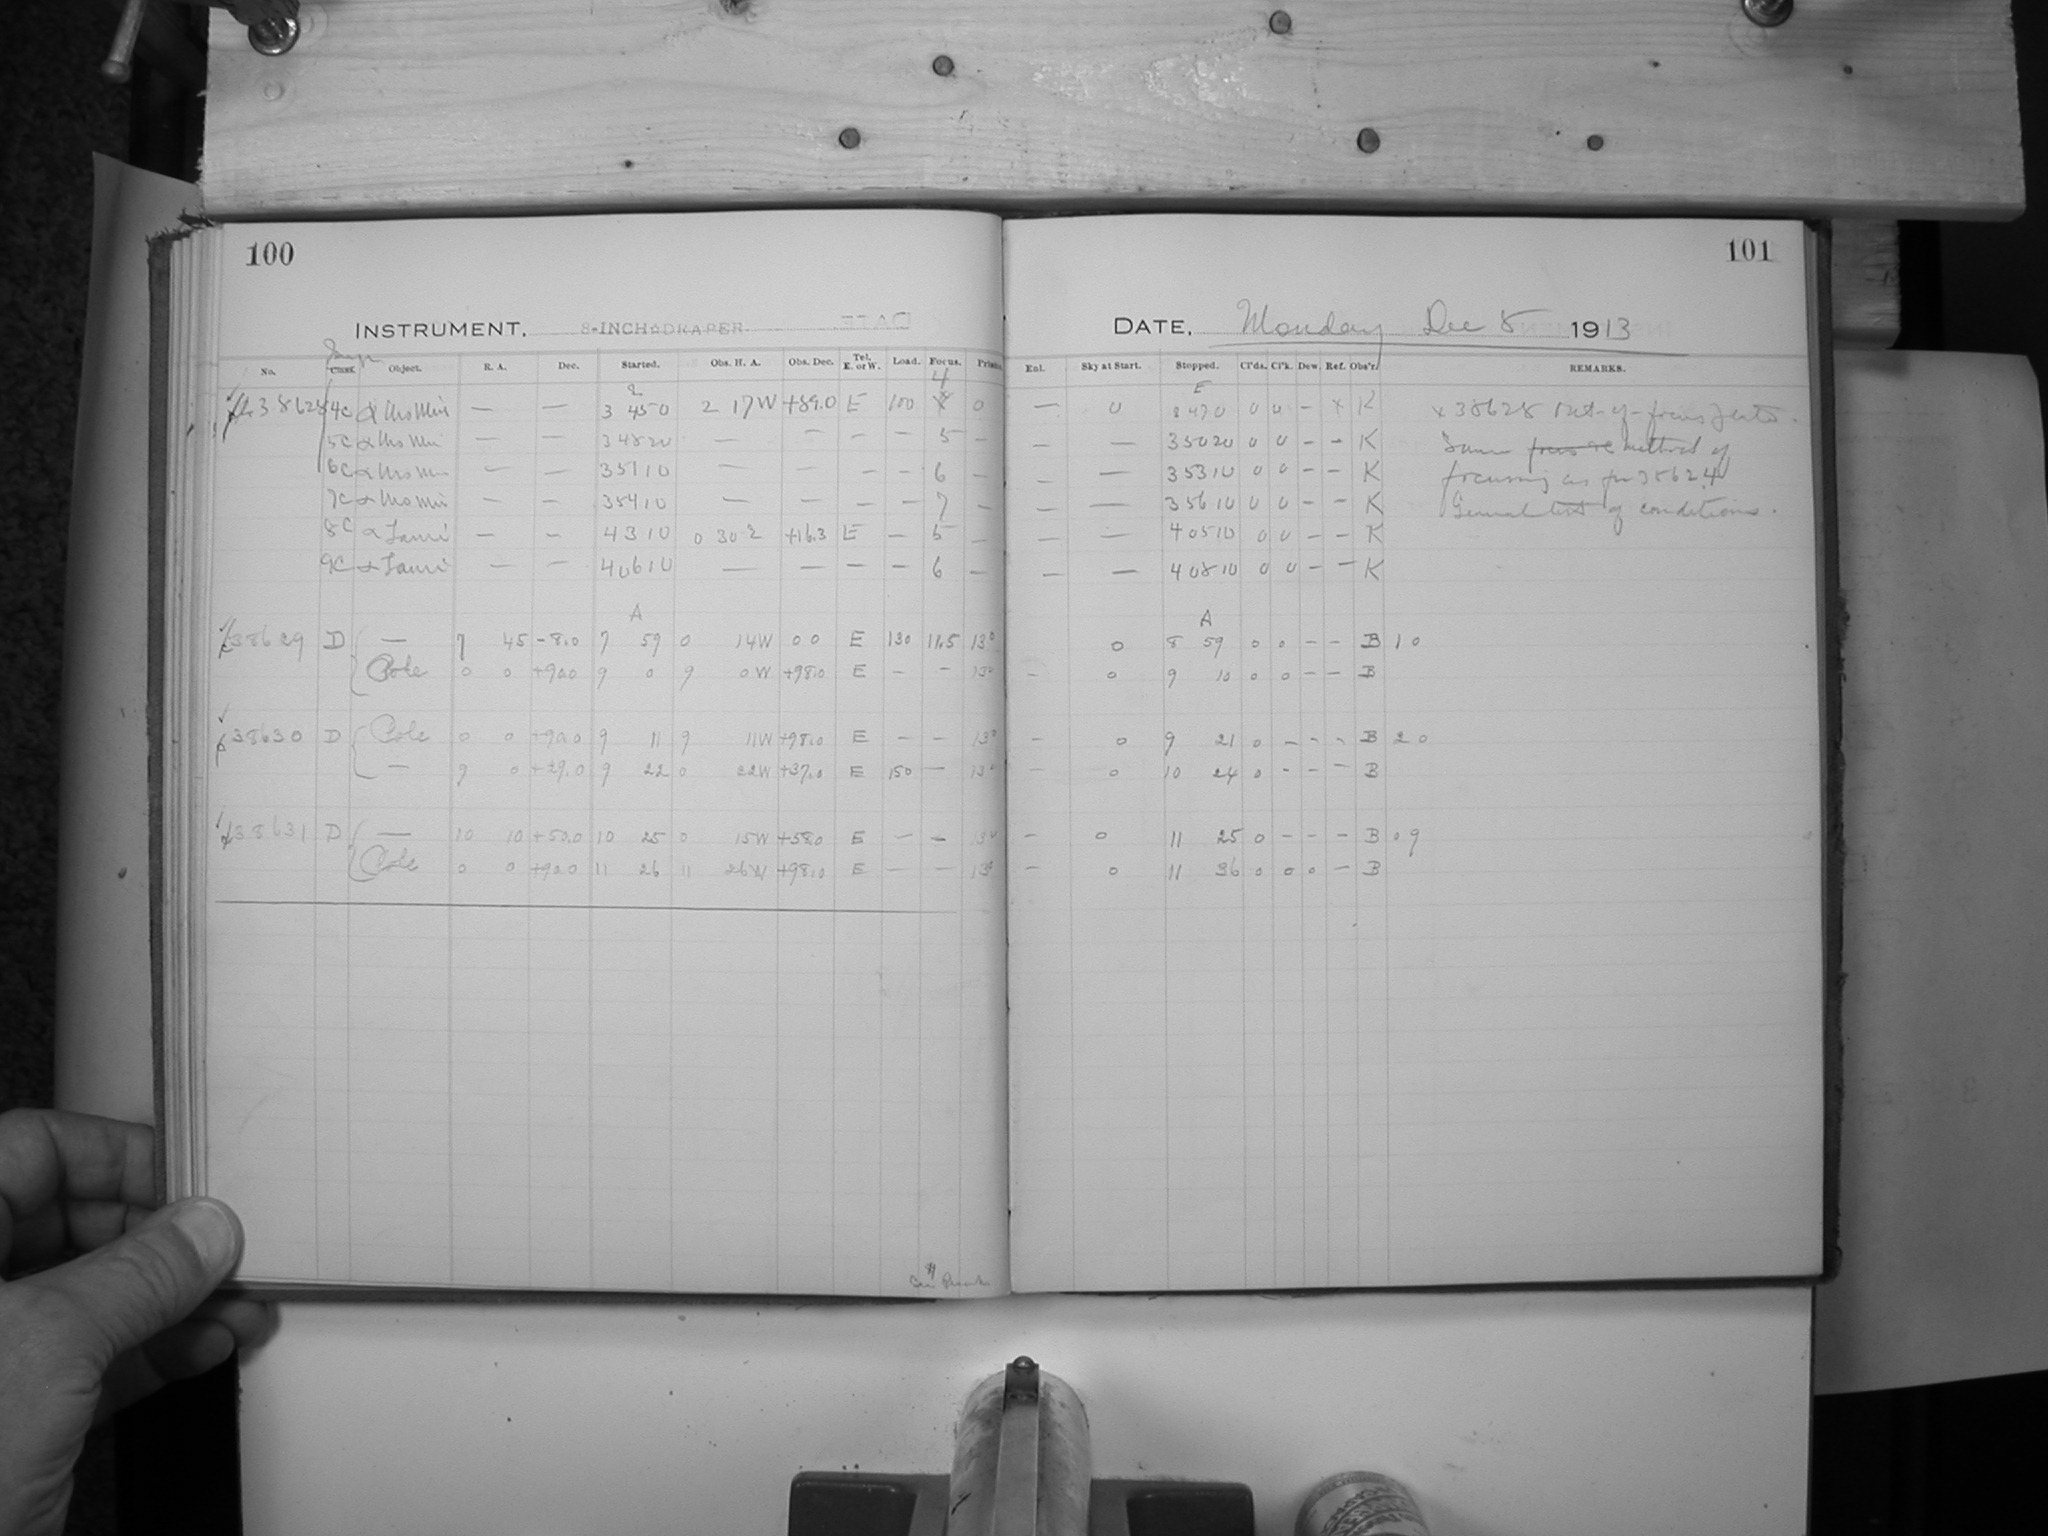 100
INSTRUMENT. 8-INCH DRAPER
No. Class. Object. R. A. Dec. Started. Obs. H. A. Obs. Dec. Tel. E. or W. Load. Focus. Prism
38628 4C α Urs Min — — 3 45 0 2 17 W +89.0 E 100 4 0
5C α Urs Min — — 3 48 20 — — — — 5 —
6C α Urs Min — — 3 51 10 — — — — 6 —
7C α Urs Min — — 3 54 10 — — — — 7 —
8C α Tauri — — 4 3 10 0 30 2 +16.3 E — 5 —
9C α Tauri — — 4 06 10 — — — — 6 —
A
38629 D — 7 45 -8.0 7 59 0 14W 0 0 E 130 11.5 13°
Pole 0 0 +90.0 9 0 9 0W +98.0 E — — 13°
38630 D Pole 0 0 +90.0 9 11 9 11W +98.0 E — — 13°
— 9 0 +29.0 9 22 0 22W +37.0 E 150 — 13°
38631 D — 10 10 +50.0 10 25 0 15W +58.0 E — — 13°
Pole 0 0 +90.0 11 26 11 26W +98.0 E — — 13°
101
DATE, Monday Dec 8 1913
Enl. Sky at Start. Stopped. Cl'ds. Cl'k. Dew. Ref. Obs'r. REMARKS.
E
— 0 3 47 0 0 0 — x K x 38628 Out-of-focus tests.
— — 3 50 20 0 0 — — K Same focus method of
— — 3 53 10 0 0 — — K focussing as for 38624
— — 3 56 10 0 0 — — K General test of conditions.
— — 4 05 10 0 0 — — K
— — 4 08 10 0 0 — — K
A
0 8 59 0 0 — — B 1 0
— 0 9 10 0 0 — — B
— 0 9 21 0 — — — B 2 0
— 0 10 24 0 — — — B
— 0 11 25 0 — — — B 0 9
— 0 11 36 0 0 0 — B